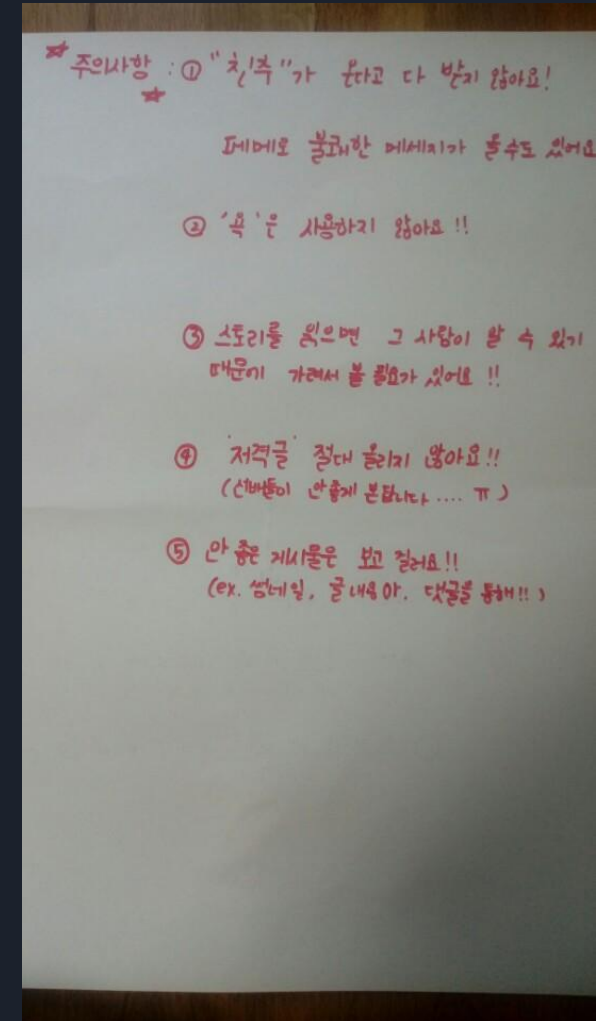 ☆ 주의사항 : ① "친추"가 온다고 다 받지 않아요!
☆
페메로 불쾌한 메세지가 올수도 있어요
② '욕'은 사용하지 않아요!!
③ 스토리를 읽으면 그 사람이 알 수 있기
때문에 가려서 볼 필요가 있어요!!
④ '저격글' 절대 올리지 않아요!!
(선배들이 안좋게 본답니다.... ㅠ)
⑤ 안 좋은 게시물은 보고 걸러요!!
(ex. 썸네일, 글 내용이, 댓글을 통해!!)